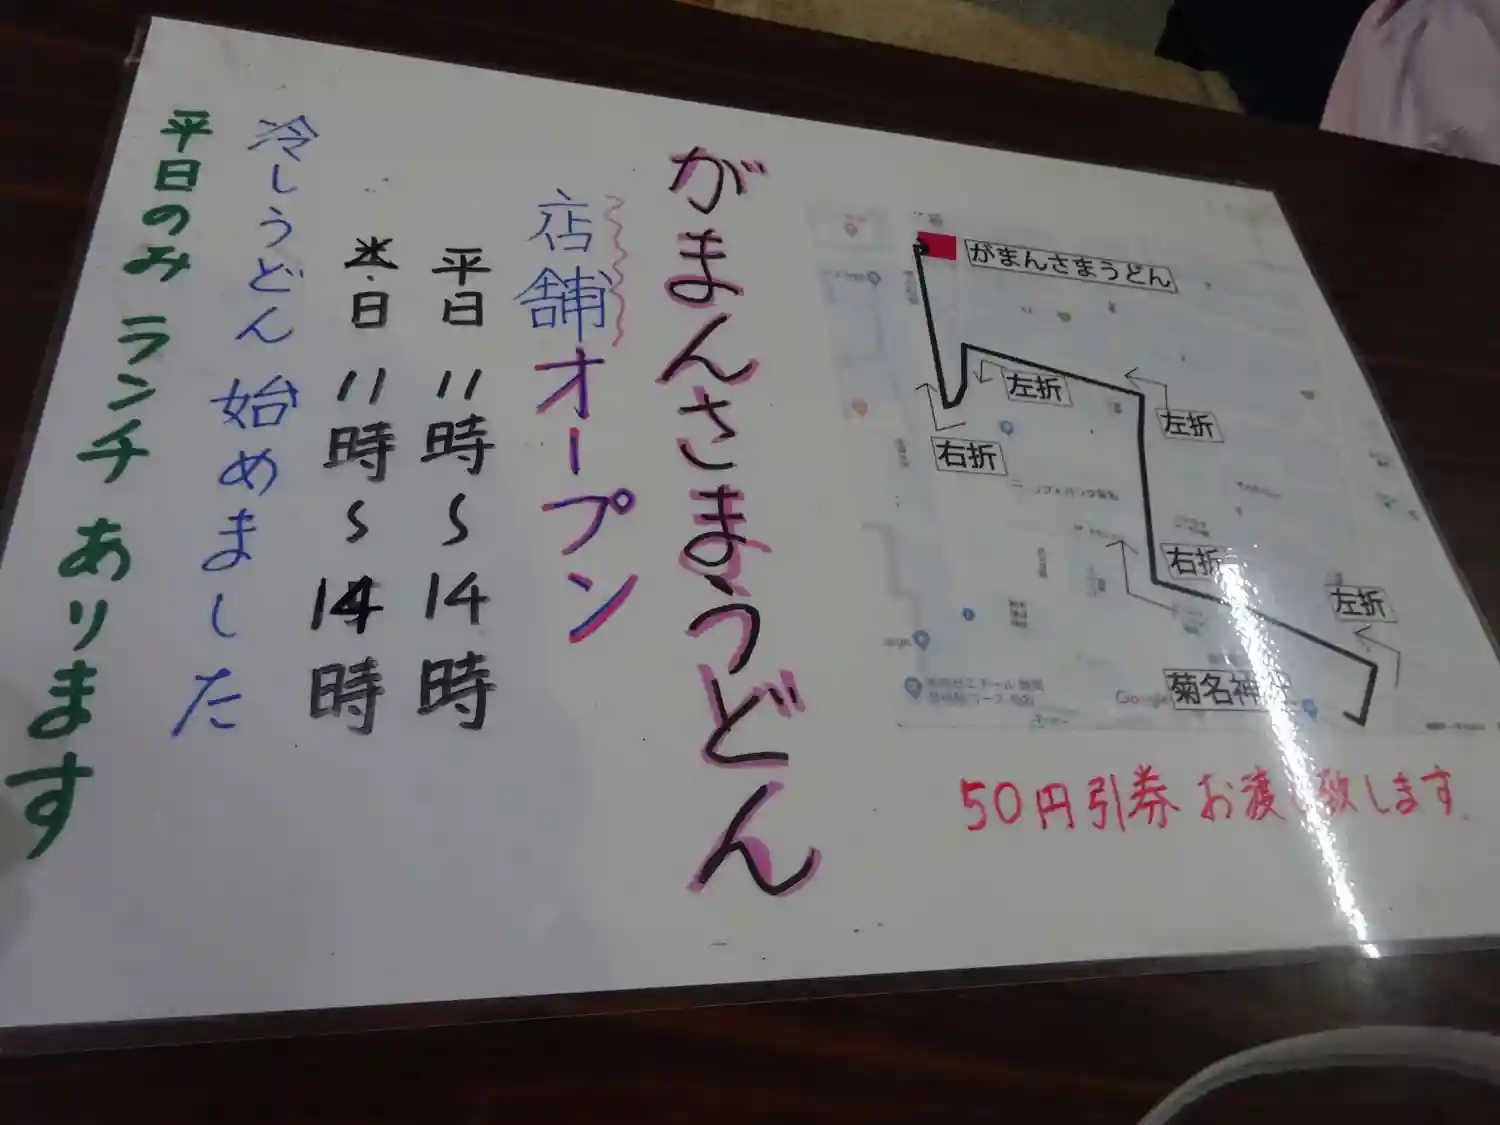 がまんさまうどん
左折
左折
右折
右折
左折
菊名神
Google
50円引券 お渡し致します
がまんさまうどん
店舗オープン
平日 11時〜14時
・日 11時〜14時
冷しうどん 始めました
平日のみ ランチ あります